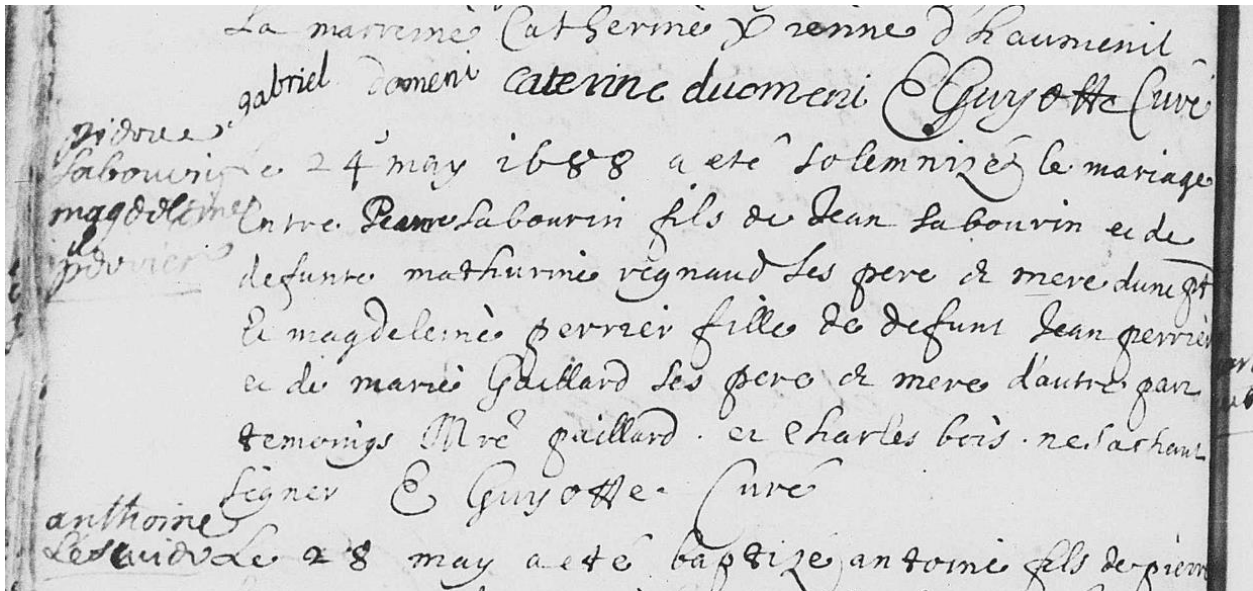 La marreine Catherine Vienne d'haumenil
gabriel domeni caterine duomeni E Guyotte Curé
pierre
sabourin
magdeleine
perrier
le 24 may 1688 a eté solemnizé le mariage
Entre Pierre sabourin fils de Jean sabourin et de
defunte mathurine regnaud ses pere & mere dune pt
Et magdeleine perrier fille de defunt Jean perrier
et de marie Gaillard ses pere & mere d'autre part
temoings Mre paillard . et Charles bois . ne sachant
signer E Guyotte . Curé
anthoine
Le 28 may a eté baptizé antoine fils de pierre